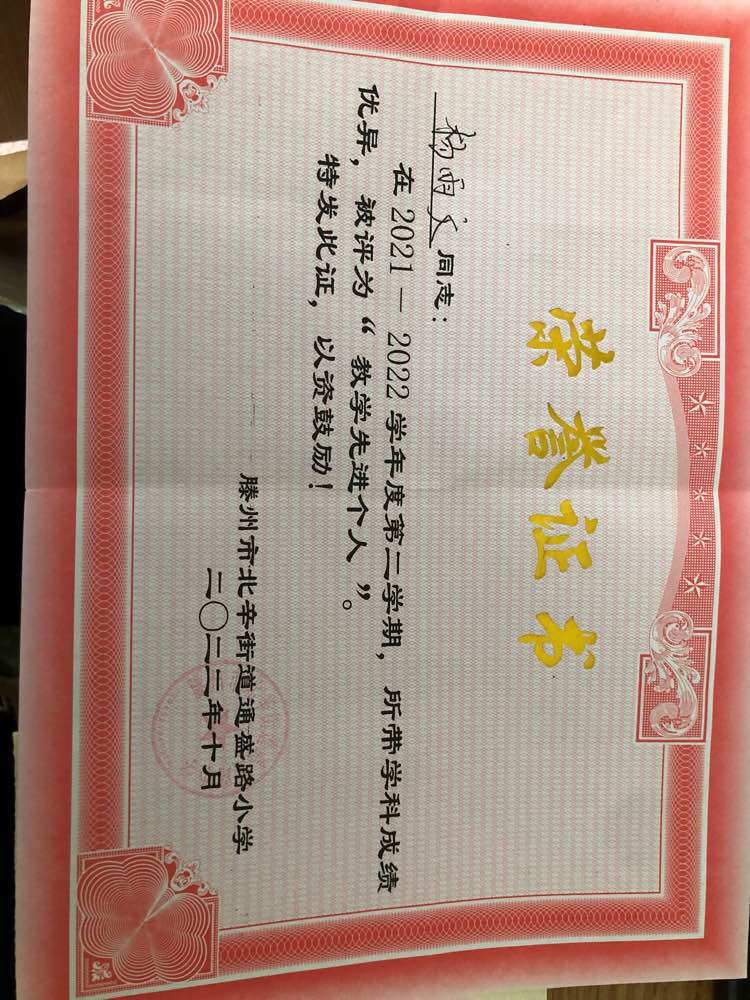 荣誉证书
杨雨文同志：
在 2021—2022 学年度第二学期，所带学科成绩
优异，被评为“教学先进个人”。
特发此证，以资鼓励！
滕州市北辛街道通盛路小学
二〇二二年十月